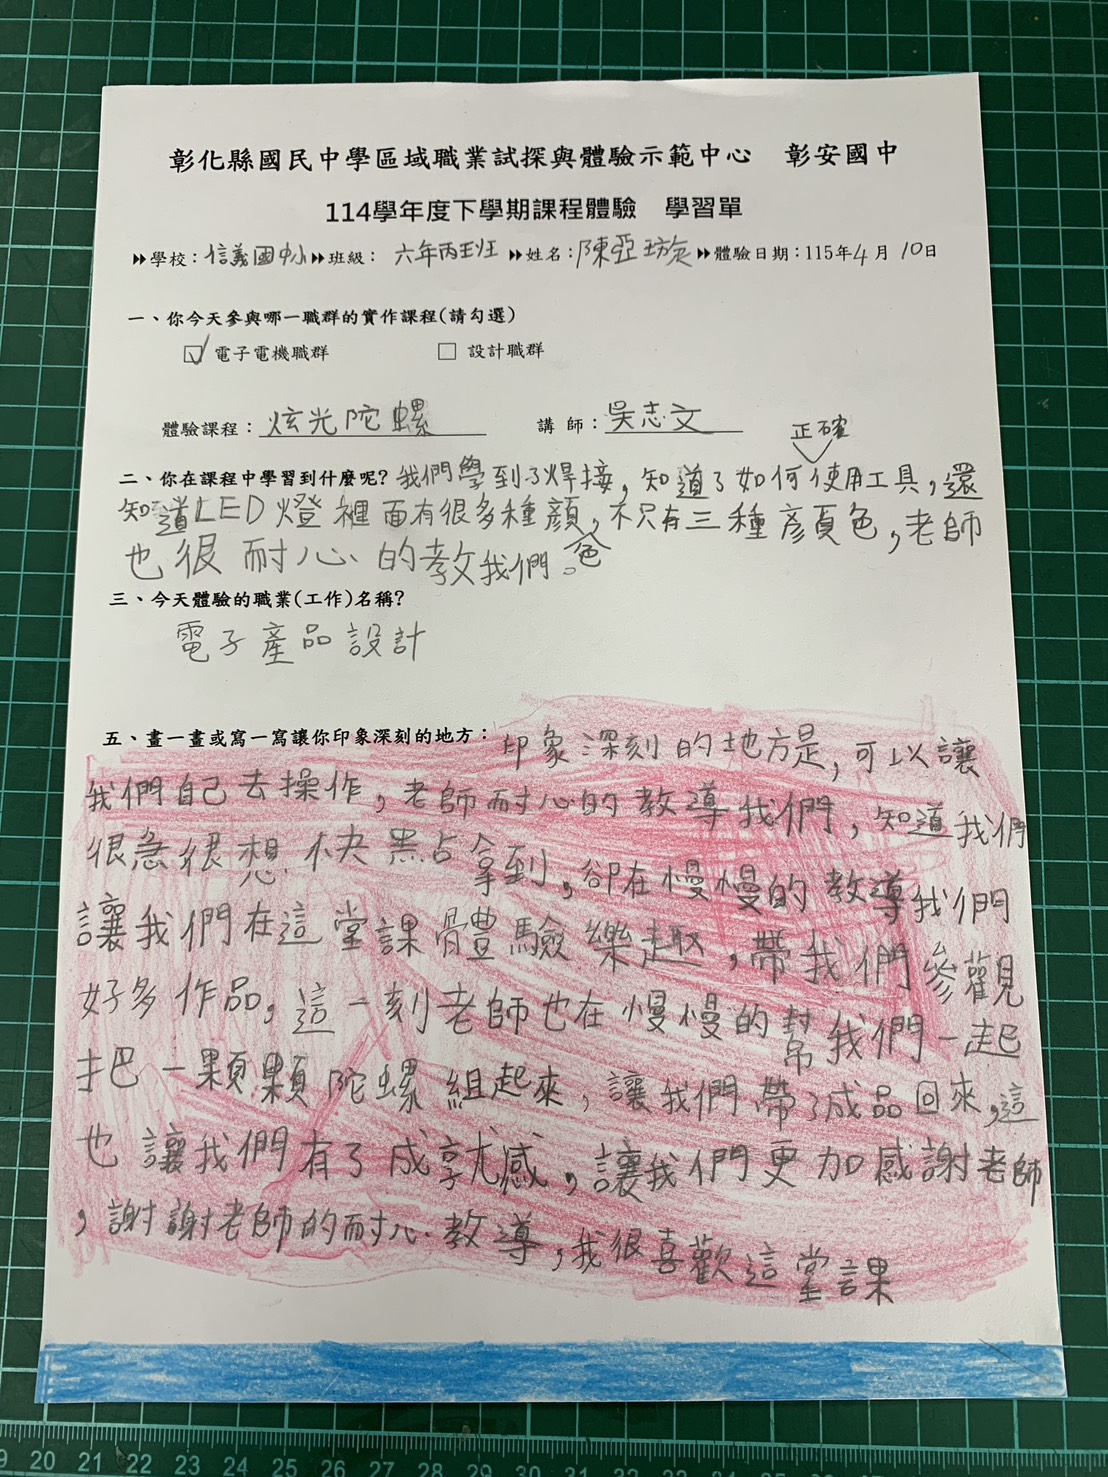 彰化縣國民中學區域職業試探與體驗示範中心　彰安國中
114學年度下學期課程體驗　學習單
▸▸學校：信義國中小▸▸班級：六年丙班 ▸▸姓名：陳亞璇▸▸體驗日期：115年4月10日
一、你今天參與哪一職群的實作課程(請勾選)
☑ 電子電機職群　□ 設計職群
體驗課程：炫光陀螺　講 師：吳志文
正確
二、你在課程中學習到什麼呢？我們學到了焊接，知道了如何使用工具，還
知道LED燈裡面有很多種顏，不只有三種顏色，老師
也很耐心的教我們。色
三、今天體驗的職業(工作)名稱？
電子產品設計
五、畫一畫或寫一寫讓你印象深刻的地方：印象深刻的地方是，可以讓
我們自己去操作，老師耐心的教導我們，知道我們
很急很想快點拿到，卻在慢慢的教導我們
讓我們在這堂課體驗樂趣，帶我們參觀
好多作品，這一刻老師也在慢慢的幫我們一起
把一顆顆陀螺組起來，讓我們帶了成品回來，這
也讓我們有了成就感，讓我們更加感謝老師
，謝謝老師的耐心教導，我很喜歡這堂課
19 20 21 22 23 24 25 26 27 28 29 30 31 32 33